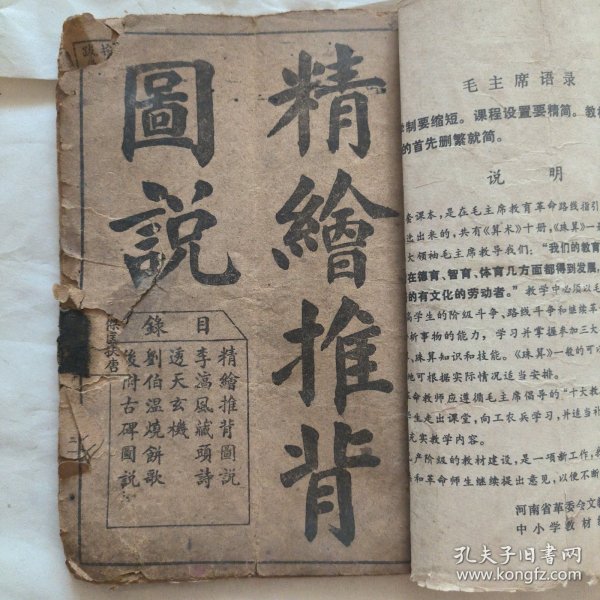 精繪推背
圖說
目錄
精繪推背圖說
李淳風藏頭詩
透天玄機
劉伯溫燒餅歌
後附古碑圖說
毛主席语录
制要缩短。课程设置要精简。教材
的首先删繁就简。
说 明
套课本，是在毛主席教育革命路线指引
出来的，共有《算术》十册，《珠算》一
大领袖毛主席教导我们：“我们的教育
在德育、智育、体育几方面都得到发展，
的有文化的劳动者。”教学中必须以毛
高学生的阶级斗争、路线斗争和继续革
析事物的能力，学习并掌握参加三大
、珠算知识和技能。《珠算》一般的可
可根据实际情况适当安排。
命教师应遵循毛主席倡导的“十大教
学生走出课堂，向工农兵学习，并适当补
充实教学内容。
产阶级的教材建设，是一项新工作，
和革命师生继续提出意见，以便不断
河南省革委会文教
中小学教材
孔夫子旧书网
www.kongfz.com